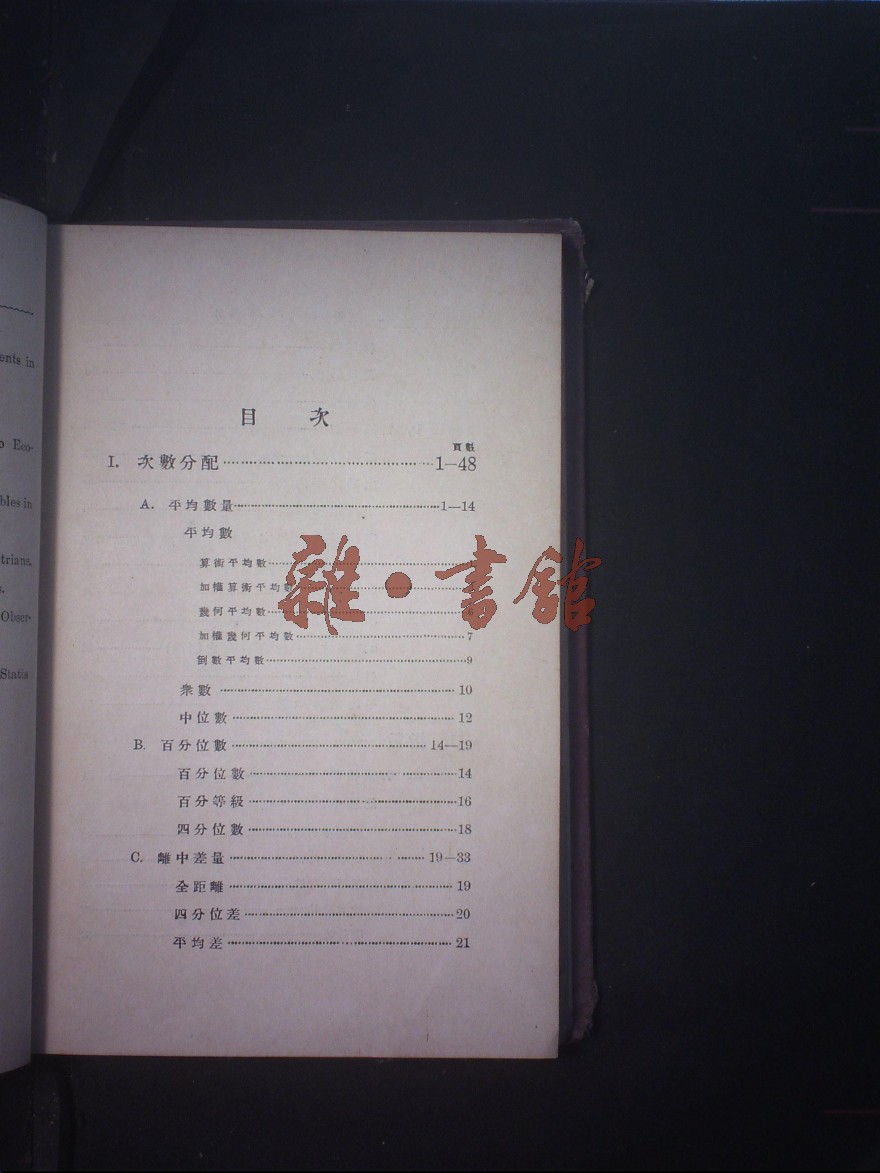 ents in
o Eco-
bles in
trians,
s.
Obser-
Statis
目 次
頁數
I. 次數分配 1—48
A. 平均數量 1—14
平均數
算術平均數
加權算術平均數
幾何平均數 6
加權幾何平均數 7
倒數平均數 9
衆數 10
中位數 12
B. 百分位數 14—19
百分位數 14
百分等級 16
四分位數 18
C. 離中差量 19—33
全距離 19
四分位差 20
平均差 21
雜·書館